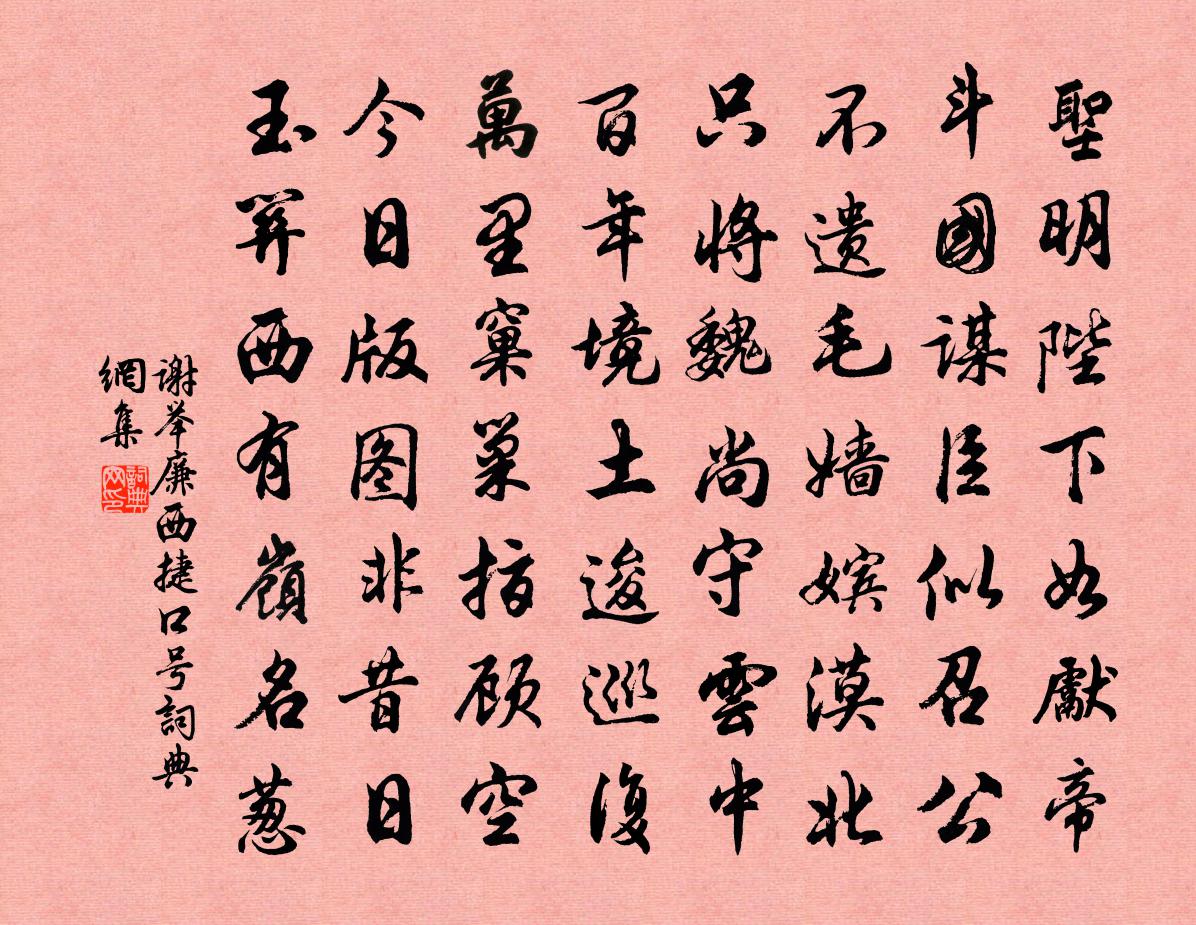 聖明陛下如獻帝
斗國謀臣似召公
不遗毛嫱嫔漠北
只將魏尚守雲中
百年境土逡巡復
萬里窠巢指顾空
今日版图非昔日
玉笄西有嶺名葱
谢举廉西捷口号詞典
網集
詞典網印